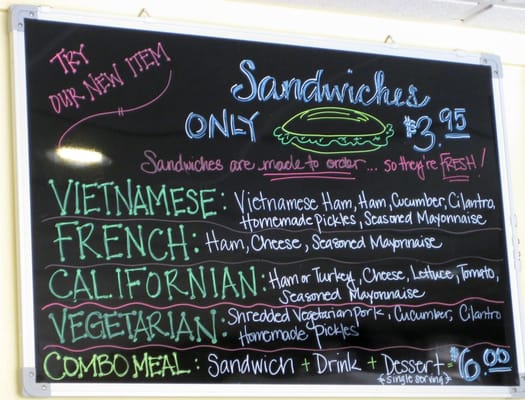 TRY
OUR NEW ITEM
Sandwiches
ONLY $3.95
Sandwiches are made to order... so they're FRESH!
VIETNAMESE: Vietnamese Ham, Ham, Cucumber, Cilantro,
Homemade Pickles, Seasoned Mayonnaise
FRENCH: Ham, Cheese, Seasoned Mayonnaise
CALIFORNIAN: Ham or Turkey, Cheese, Lettuce, Tomato,
Seasoned Mayonnaise
VEGETARIAN: Shredded Vegetarian Pork, Cucumber, Cilantro
Homemade Pickles
COMBO MEAL: Sandwich + Drink + Dessert = $6.00
{single serving}